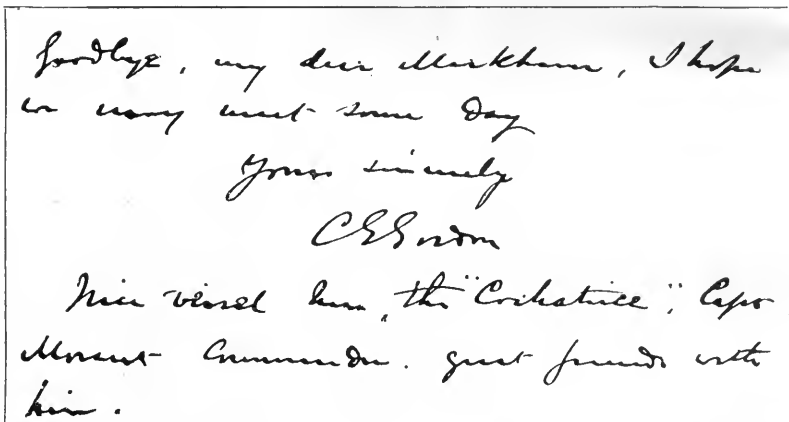 Goodbye, my dear Markham, I hope
we may meet some day
Yours sincerely
C G Gordon
Nice vessel here, the "Cockatrice", Cap
Morant Commander. great friends with
him.